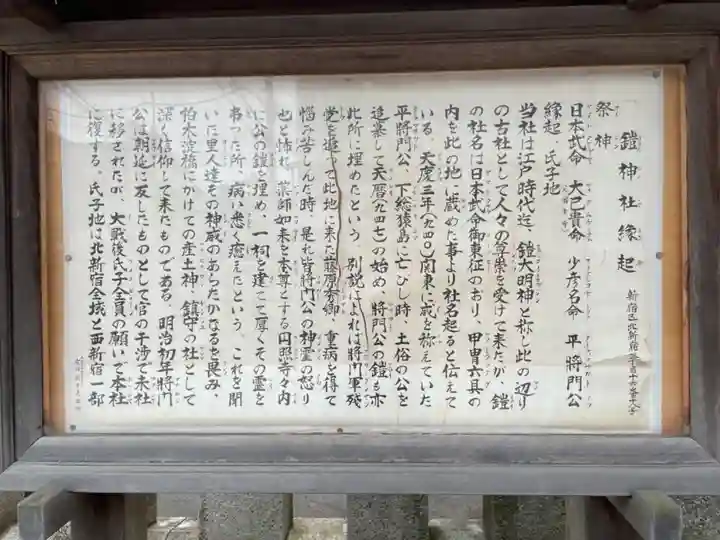 鎧神社縁起
祭神
日本武命 大己貴命 少彦名命 平将門公
縁起、氏子地
当社は江戸時代迄、鎧大明神と称し此の辺り
の古社として人々の尊崇を受けて来たが、鎧
の社名は日本武命御東征のおり、甲冑六具の
内を此の地に蔵めた事より社名起ると伝えて
いる。天慶三年(九四〇)関東に威を称えていた
平將門公、下総猿島に亡びし時、土俗の公を
追慕して天暦(九四七)の始め、將門公の鎧も亦
此所に埋めたという。別説によれば將門軍残
党を追って此地に来た藤原秀郷、重病を得て
悩み苦しんだ時、是れ皆將門公の神霊の怒り
也と怖れ、薬師如来を本尊とする円照寺々内
に公の鎧を埋め、一祠を建てて厚くその霊を
弔った所、病い悉く癒えたという。これを聞
いた里人達その神威のあらたかなるを畏み、
柏木淀橋にかけての産土神、鎮守の社として
深く信仰して来たものである。明治初年將門
公は朝廷に反したものとして官の干渉で末社
に移されたが、大戦後氏子全員の願いで本社
に復する。氏子地は北新宿全域と西新宿一部